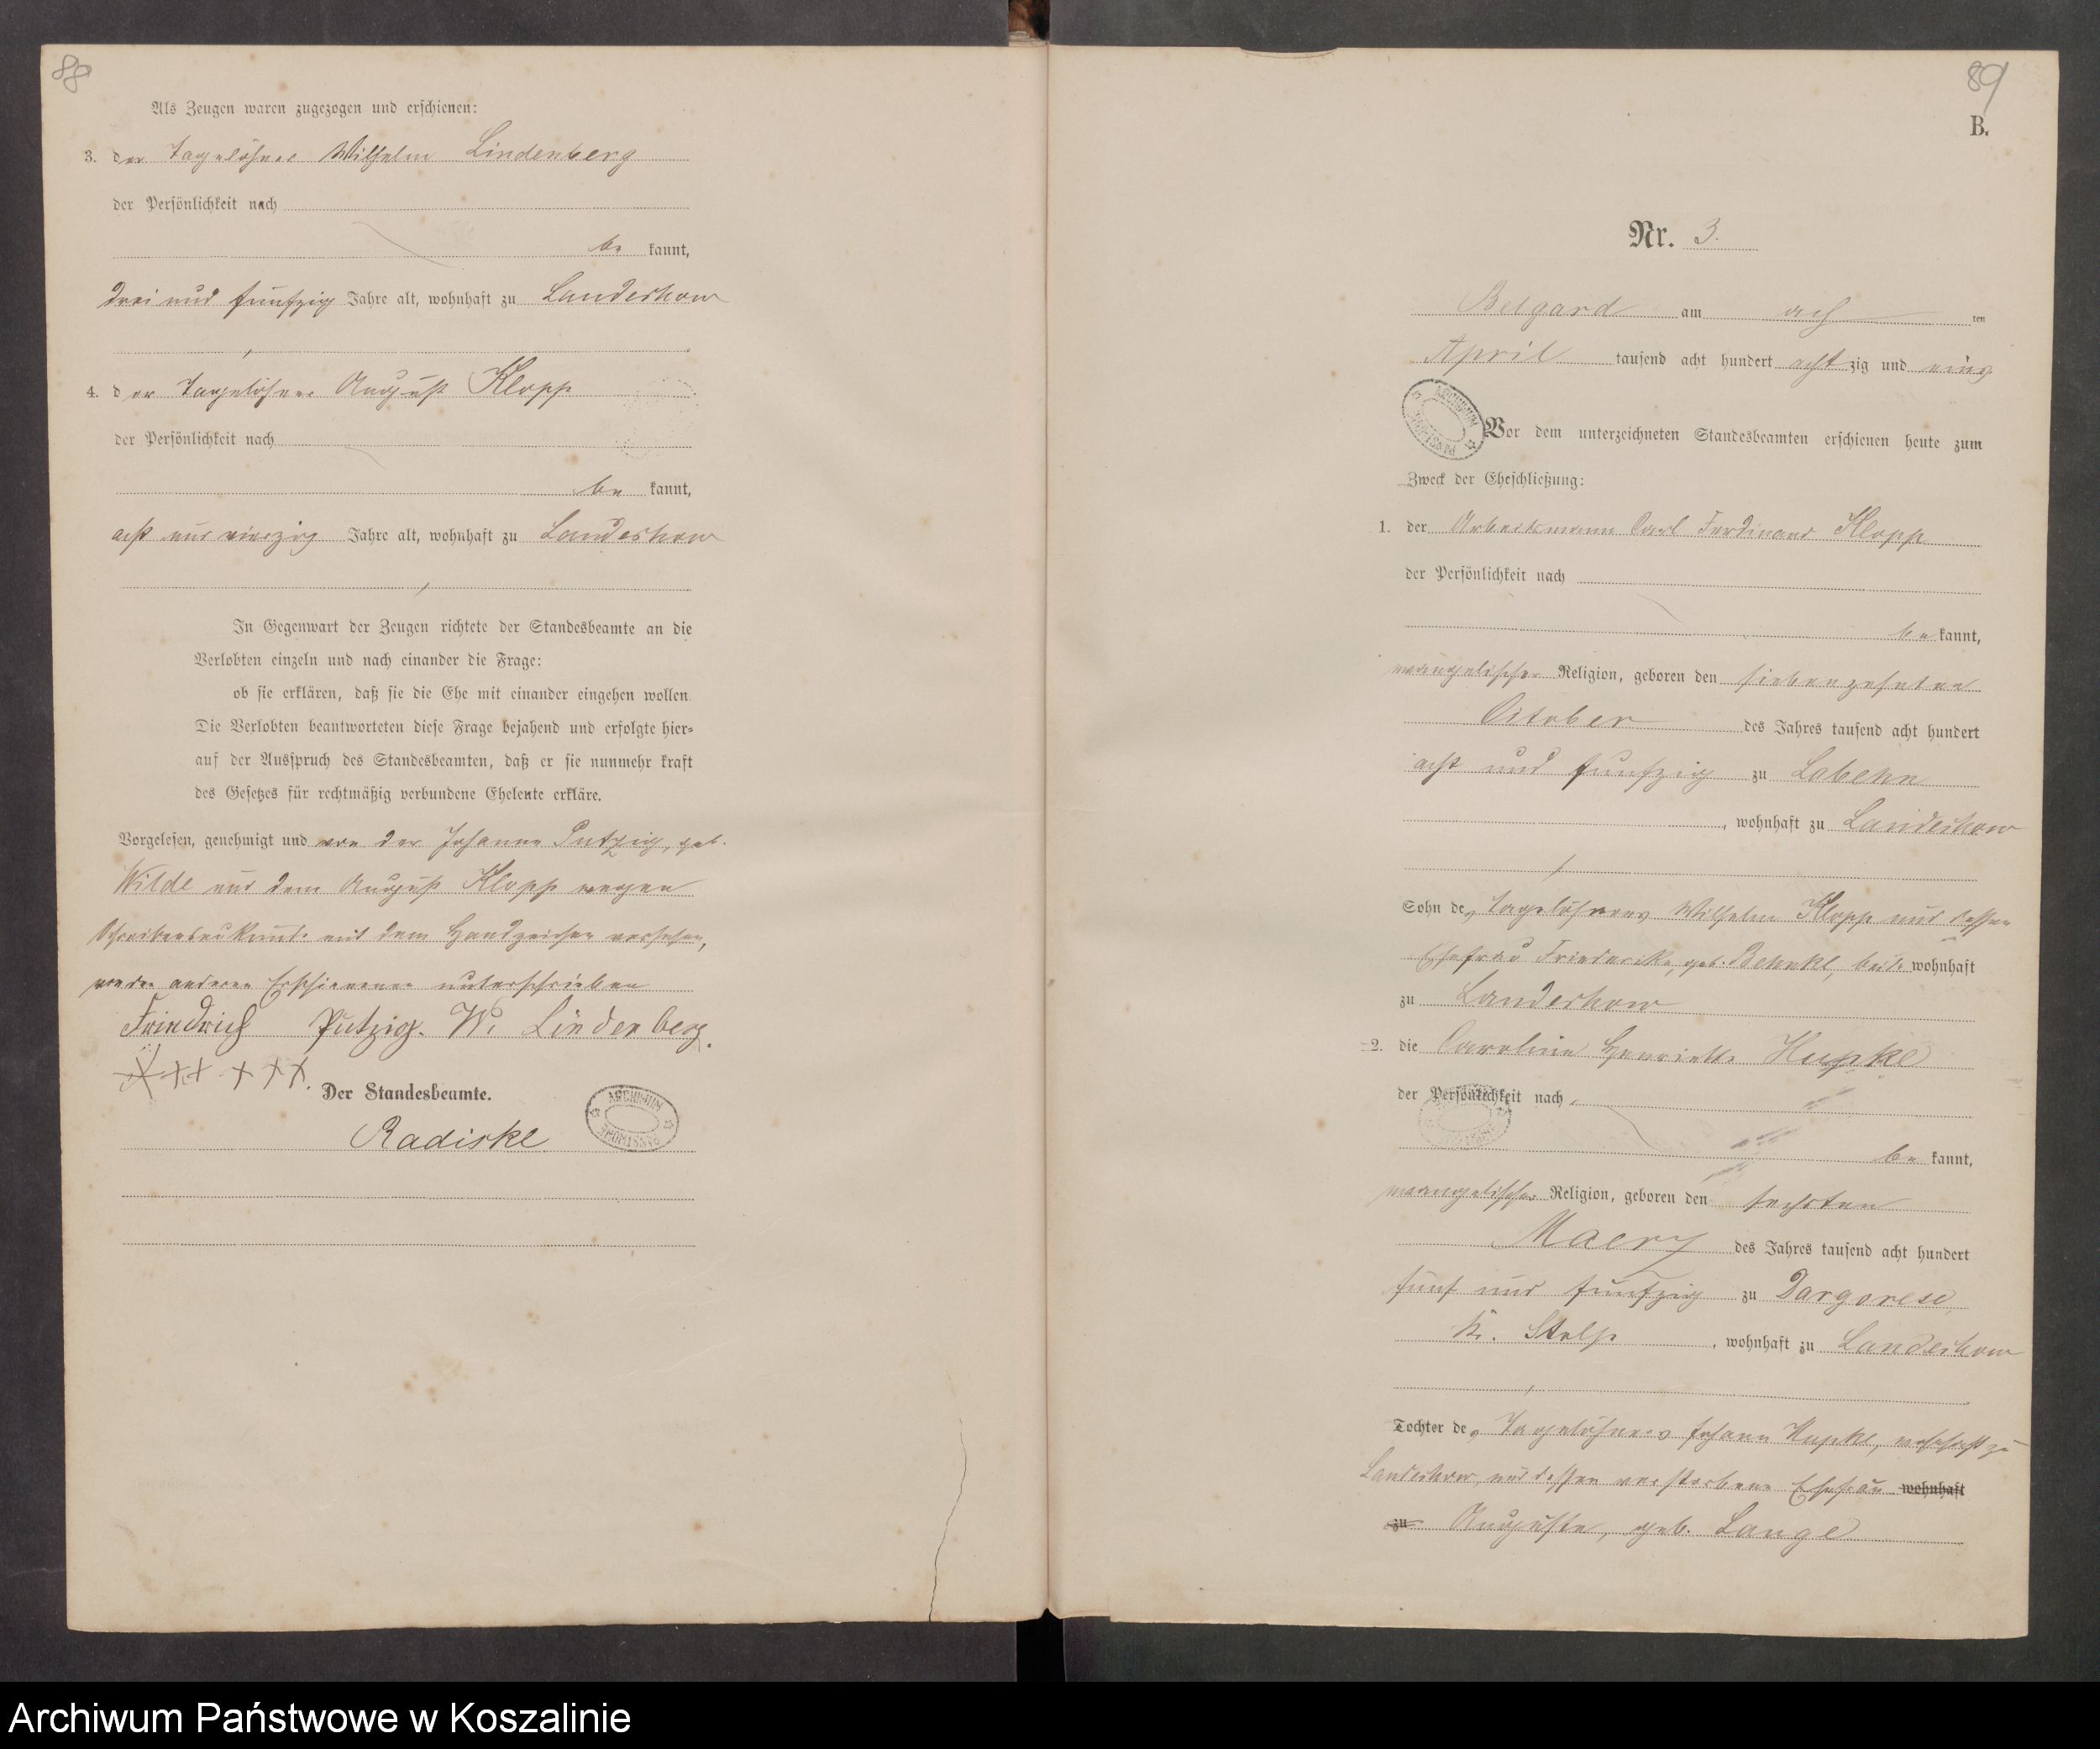 88
Als Zeugen waren zugezogen und erschienen:
3. der Tagelöhner Wilhelm Lindenberg
der Persönlichkeit nach
be kannt,
drei und fünfzig Jahre alt, wohnhaft zu Landeskow
4. der Tagelöhner August Klopp
der Persönlichkeit nach
be kannt,
acht und vierzig Jahre alt, wohnhaft zu Landeskow
In Gegenwart der Zeugen richtete der Standesbeamte an die
Verlobten einzeln und nach einander die Frage:
ob sie erklären, daß sie die Ehe mit einander eingehen wollen.
Die Verlobten beantworteten diese Frage bejahend und erfolgte hier-
auf der Ausspruch des Standesbeamten, daß er sie nunmehr kraft
des Gesetzes für rechtmäßig verbundene Eheleute erkläre.
Vorgelesen, genehmigt und von der Johanne Putzig, geb.
Wilde und dem August Klopp wegen
Schreibensunkunde mit dem Handzeichen versehen,
von den anderen Erschienenen unterschrieben
Friedrich Putzig. W. Lindenberg.
+++ +++.
Der Standesbeamte.
Radiske
ARCHIWUM PAŃSTWOWE
89
B.
Nr. 3.
Belgard am ach ten
April tausend acht hundert acht zig und eins
ARCHIWUM PAŃSTWOWE
Vor dem unterzeichneten Standesbeamten erschienen heute zum
Zweck der Eheschließung:
1. der Arbeitsmann Carl Ferdinand Klopp
der Persönlichkeit nach
be kannt,
evangelischer Religion, geboren den siebenzehnten
October des Jahres tausend acht hundert
acht und fünfzig zu Labehn
, wohnhaft zu Landeskow
Sohn des Tagelöhners Wilhelm Klopp und dessen
Ehefrau Friederike, geb. Behnke, beide wohnhaft
zu Landeskow
2. die Caroline Henriette Hupke
der Persönlichkeit nach
be kannt,
evangelischer Religion, geboren den sechsten
Maerz des Jahres tausend acht hundert
fünf und fünfzig zu Dargorese,
Kr. Stolp, wohnhaft zu Landeskow
Tochter des Tagelöhners Johann Hupke, wohnhaft zu
Landeskow, und dessen verstorbene Ehefrau wohnhaft
zu Auguste, geb. Lange
Archiwum Państwowe w Koszalinie